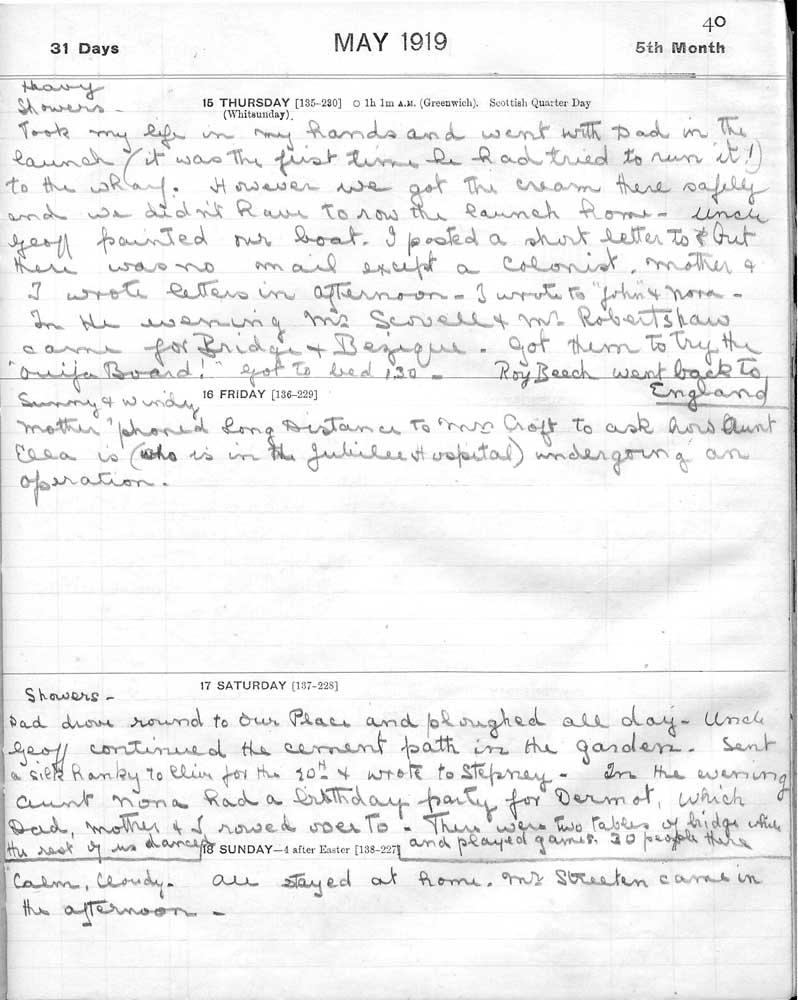 40
31 Days MAY 1919 5th Month
Heavy
Showers -
15 THURSDAY [135-230] O 1h 1m A.M. (Greenwich). Scottish Quarter Day
(Whitsunday).
Took my life in my hands and went with Dad in the
launch (it was the first time he had tried to run it!)
to the wharf. However we got the cream there safely
and we didn't have to row the launch home - Uncle
Geoff painted our boat. I posted a short letter to but
there was no mail except a Colonist. Mother &
I wrote letters in afternoon - I wrote to "John" & Nora -
In the evening Mr Scovell & Mr Robertshaw
came for Bridge & Bezique. Got them to try the
"Ouija Board!" Got to bed 1.30 - Roy Beech went back to
England
Sunny & Windy 16 FRIDAY [136-229]
Mother 'phoned Long Distance to Mrs Croft to ask how Aunt
Ella is (who is in the Jubilee Hospital) undergoing an
operation.
17 SATURDAY [137-228]
Showers -
Dad drove round to Our Place and ploughed all day - Uncle
Geoff continued the cement path in the garden. Sent
a silk hanky to Clive for the 20th & wrote to Stepney - In the evening
Aunt Nona had a birthday party for Dermot, which
Dad, Mother & I rowed over to - There were two tables of bridge while
the rest of us danced and played games. 20 people there
18 SUNDAY-4 after Easter [138-227]
Calm, Cloudy. All stayed at home. Mr Streeten came in
the afternoon -